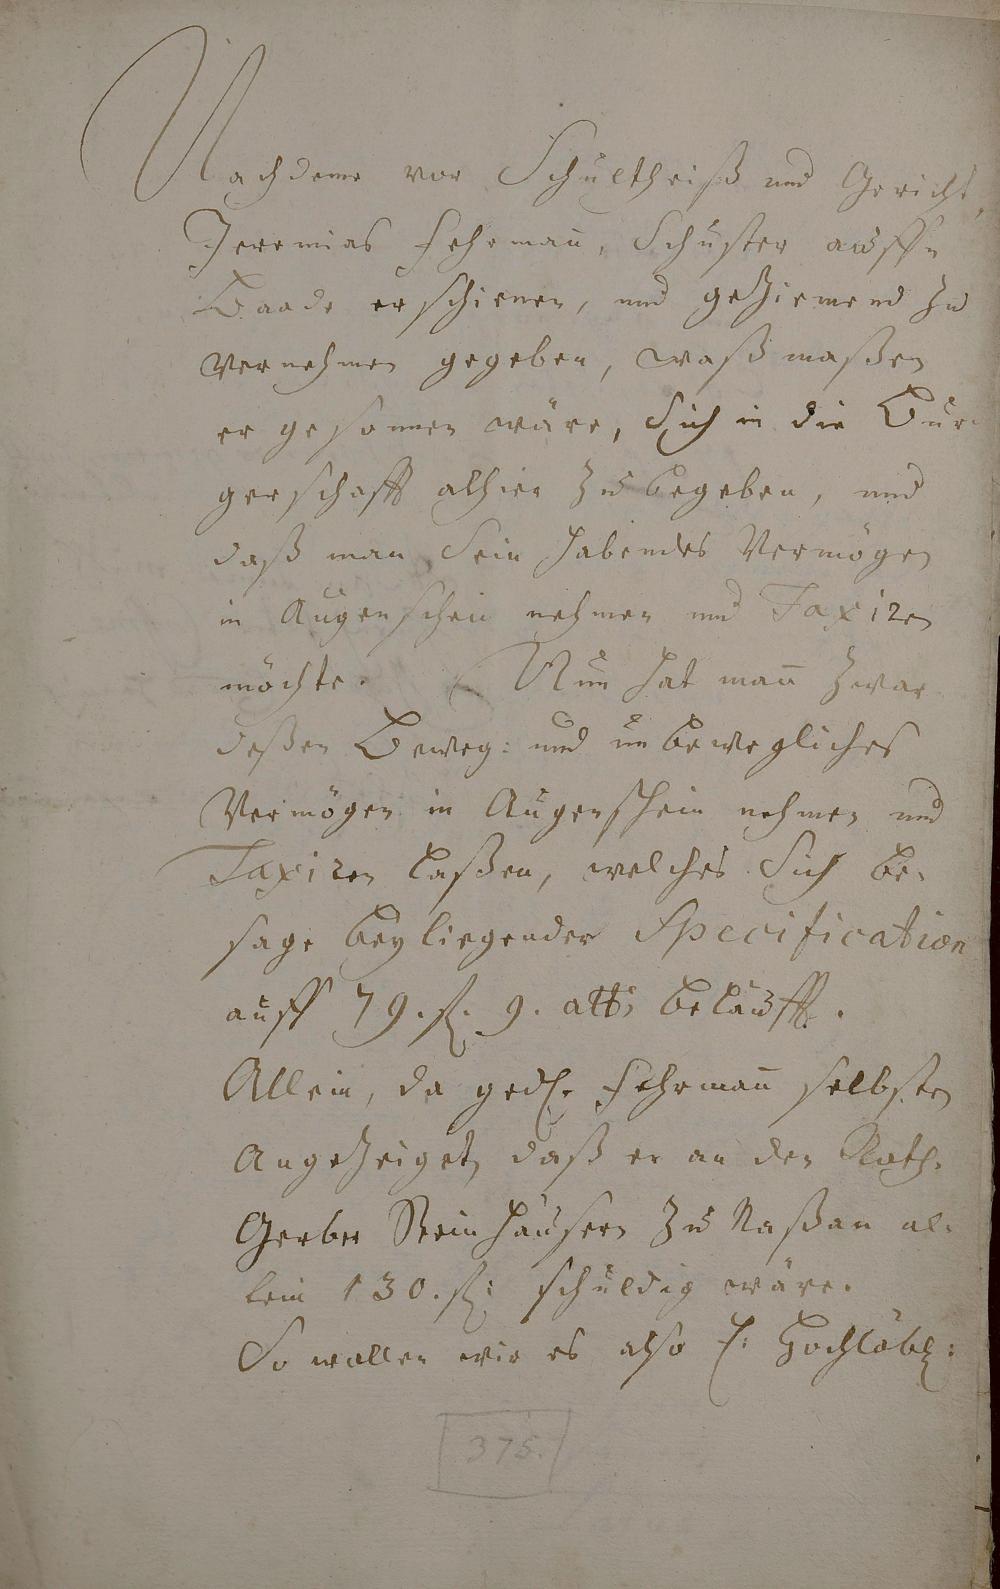 Nachdeme vor Schultheiß und Gericht,
Jeremias Fehrman, Schuster auffn
Baade erschienen, und geziemend zu
vernehmen gegeben, waß maßen
er gesonnen wäre, Sich in die Bur-
gerschafft alhier zu begeben, und
daß man Sein habendes Vermögen
in Augenschein nehmen und Taxiren
möchte. Nun hat man zwar
deßen Beweg: und unbewegliches
Vermögen in Augenschein nehmen und
Taxiren laßen, welches Sich be-
sage beyliegender Specification
auff 79. fl. 9. alb. belaufft.
Allein, da gedl. Fehrman selbsten
Angezeiget, daß er an den Roth-
Gerber Steinhäusern zu Naßau al-
lein 130. fl: schuldig wäre.
So wollen wir es also E: Hochlöbl:
375.